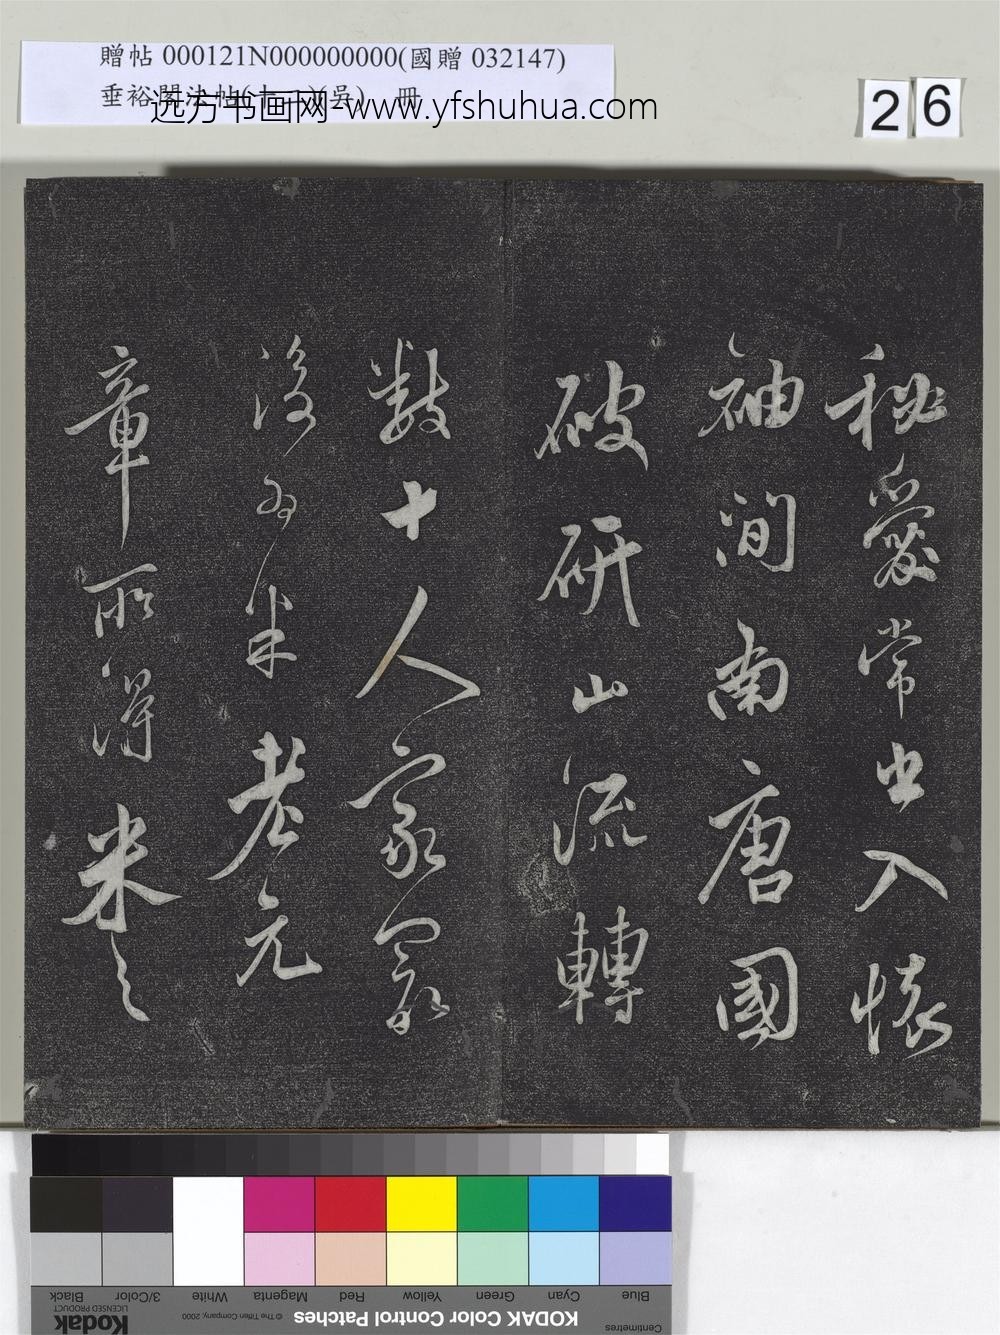 贈帖 000121N000000000(國贈 032147)
垂裕閣法帖(十 )(吳) 冊
远方书画网-www.yfshuhua.com
26
秘愛常出入懷
袖澗南唐國
破研山流轉
數十人家最
後為米老元
章所得米之
Black
3/Color
White
Magenta
Red
Yellow
Green
Cyan
Blue
Kodak
LICENSED PRODUCT
© The Tiffen Company, 2000
KODAK Color Control Patches
Centimetres